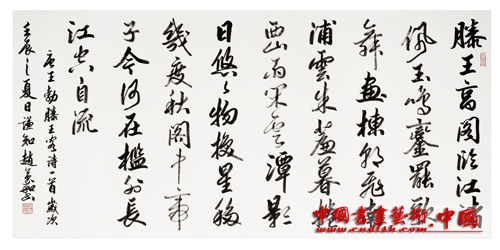 滕王高閣臨江渚
佩玉鳴鑾罷歌
舞畫棟朝飛南
浦雲朱簾暮捲
西山雨閑雲潭影
日悠々物換星移
幾度秋閣中帝
子今何在檻外長
江空自流
唐王勃滕王閣詩一首歲次
壬辰之夏日謙和趙
中國書畫藝術.中國